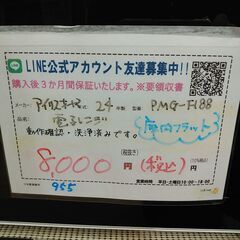 LINE公式アカウント友達募集中!!
購入後3か月間保証いたします。※要領収書
メーカー アイリスオーヤマ 24年製 型番 PMG-F188
品名 電子レンジ 庫内フラット
動作確認・洗浄済みです。
8,000円 (税抜き) (税込)
955
営業時間 平日・土曜日10:00-18:00